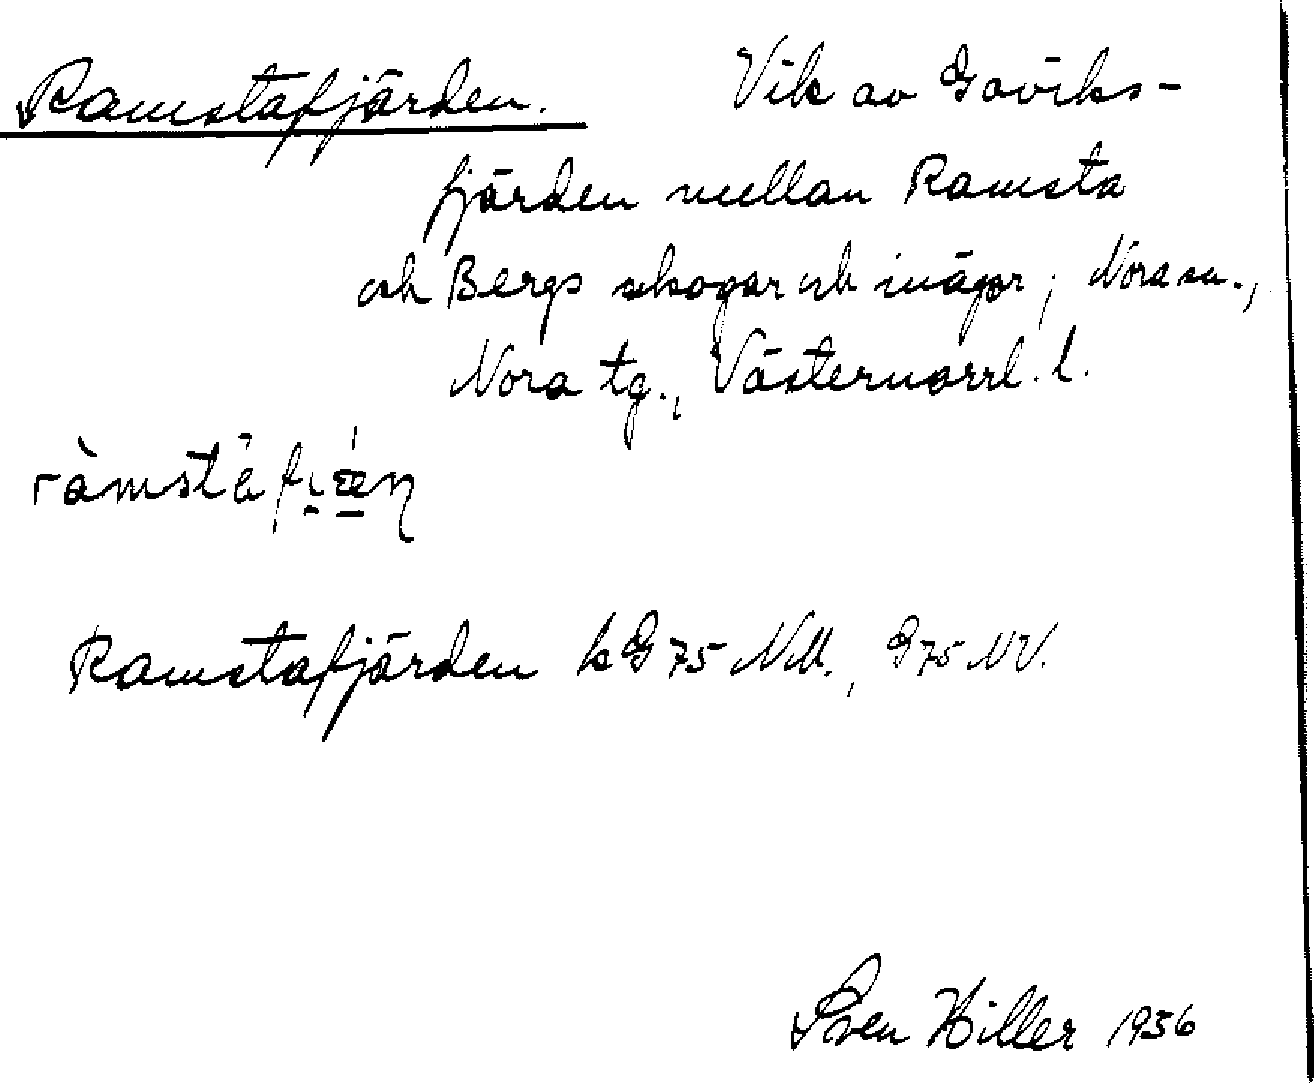 Ramstafjärden. Vik av Gaviks-
fjärden mellan Ramsta
och Bergs skogar och inägor; Nora sn.,
Nora tg., Västernorrl. l.
Ramstafjärden k G 75 NV., G 75 NV.
Sven Hiller 1936